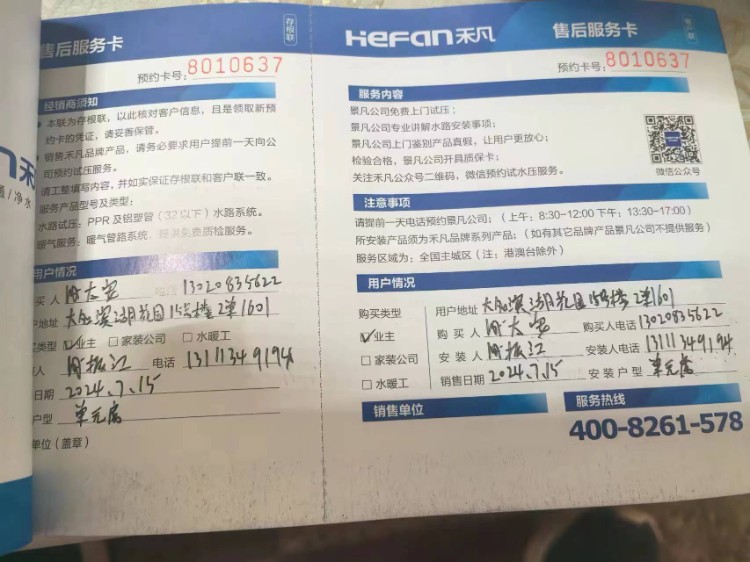 售后服务卡
存根联
预约卡号: 8010637
经销商须知
本联为存根联,以此核对客户信息,且是领取新预
约卡的凭证,请妥善保管。
销售禾凡品牌产品,请务必要求用户提前一天向公
司预约试压服务。
请工整填写内容,并如实保证存根联和客户联一致。
服务产品型号及类型:
水路试压:PPR 及铝塑管(32 以下)水路系统。
暖气服务:暖气管路系统,提供免费质检服务。
用户情况
买人 电话 13020835622
地址 滨湖花园15号楼2单1601
类型 ☑业主 □家装公司 □水暖工
人 电话 13111349194
日期 2024.7.15
户型 单元房
单位(盖章)
HeFan禾凡 售后服务卡
预约卡号: 8010637
服务内容
景凡公司免费上门试压;
景凡公司专业讲解水路安装事项;
景凡公司上门鉴别产品真假,让用户更放心;
检验合格,景凡公司开具质保卡;
关注禾凡公众号二维码,微信预约试水压服务。
微信公众号
注意事项
请提前一天电话预约景凡公司;(上午:8:30-12:00 下午:13:30-17:00)
所安装产品须为禾凡品牌系列产品;(如有其它品牌产品景凡公司不提供服务)
服务区域为:全国主城区(注:港澳台除外)
用户情况
购买类型
☑业主
□家装公司
□水暖工
用户地址 滨湖花园15号楼2单1601
购买人 购买人电话 13020835622
安装人 安装人电话 13111349194
销售日期 2024.7.15 安装户型 单元房
销售单位
服务热线
400-8261-578